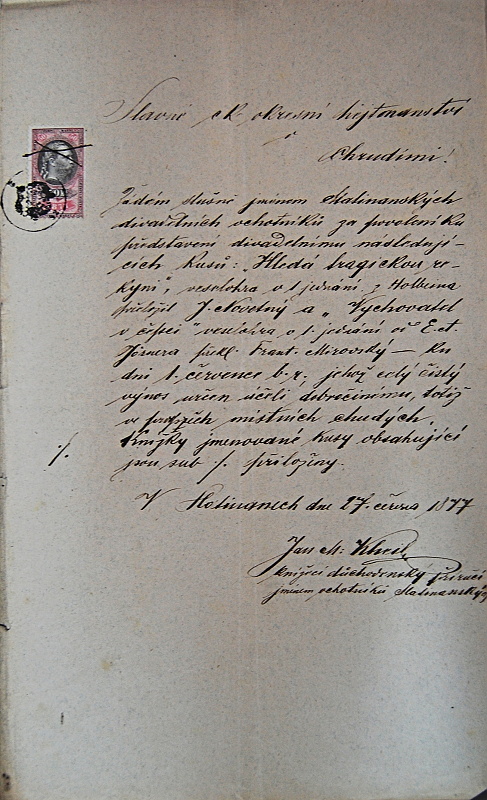 Slavné ck. okresní hejtmanství
v
Chrudimi!
Žádám slušně jménem Slatinanských
divadelních ochotníků za povolení ku
představení divadelnímu následují-
cích kusů: „Hledá tragickou re-
kyni", veselohra o 1 jednání z Holbeina
přeložil J. Novotný a „Vychovatel
v čepci" veselohra o 1. jednání od E. A.
Görnera překl. Frant. Mírovský — ku
dni 1. července b. r., jehož celý čistý
výnos určen účeli dobročinnému, totiž
ve prospěch místních chudých.
Knížky jmenované kusy obsahující
·/. jsou sub ·/. přiloženy.
V Slatinanech dne 27. června 1877
Jan M.
knížecí důchodenský
jménem ochotníků Slatinanských